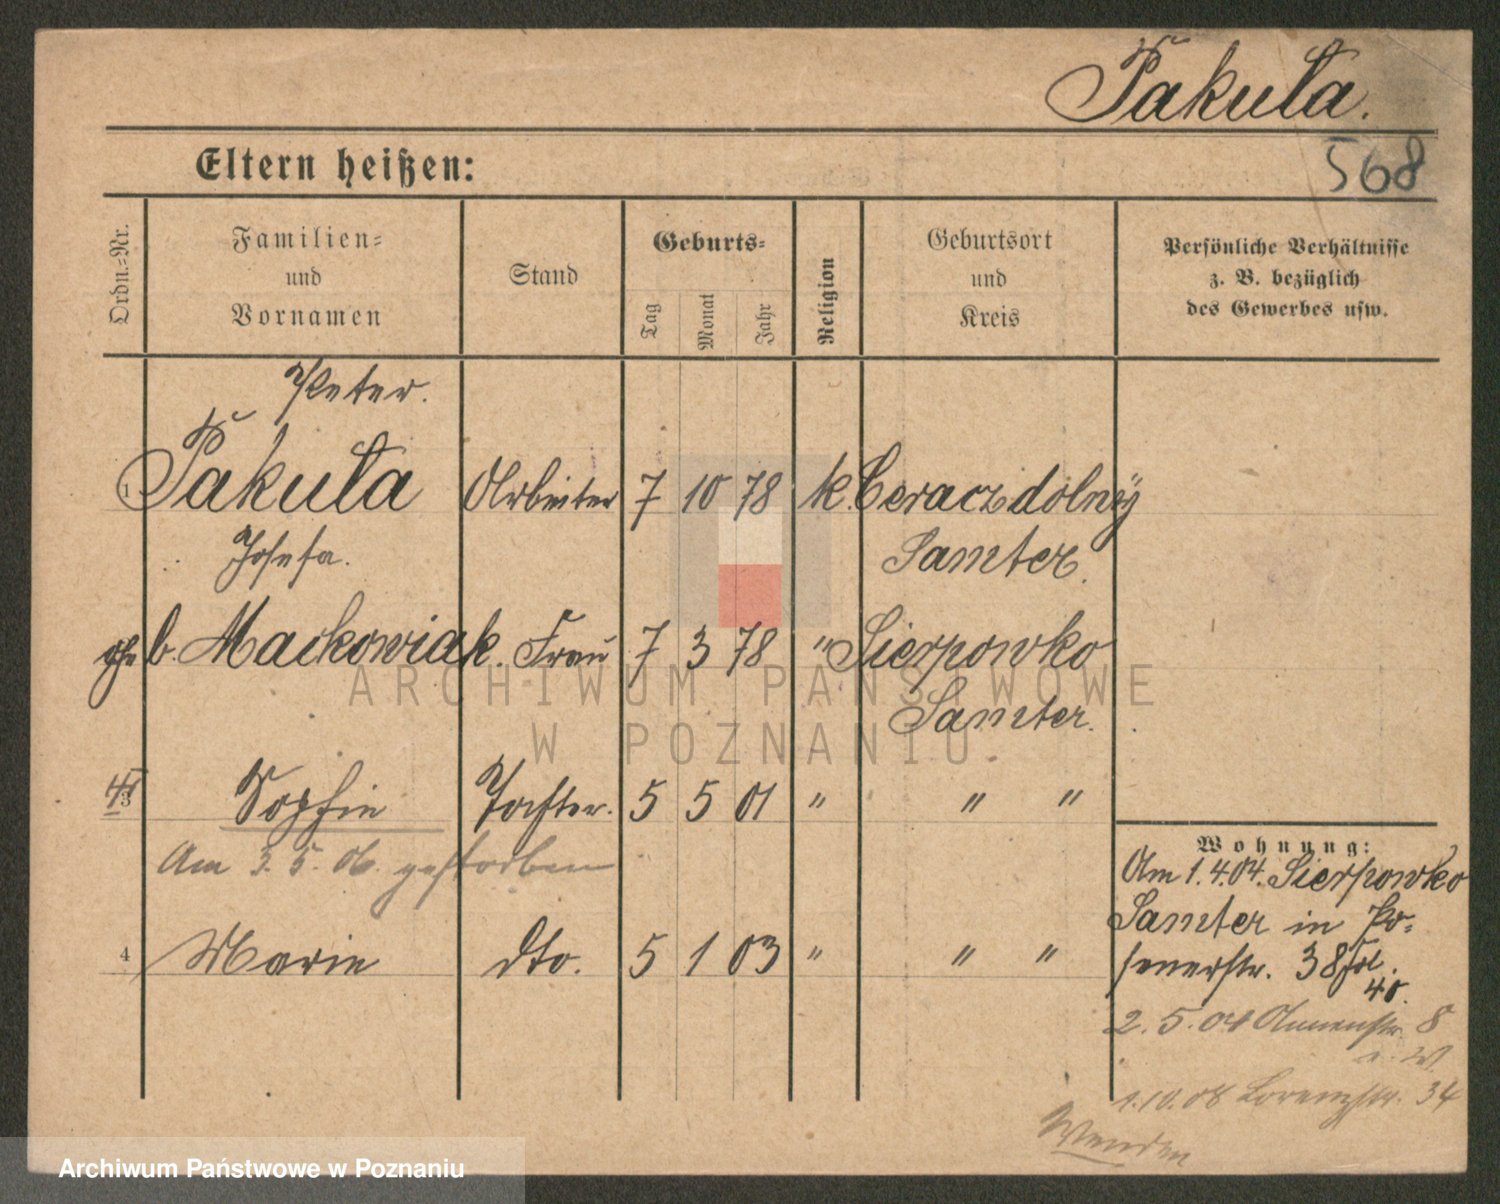 Pakuła.
568
Eltern heißen:
Ordn.-Nr.
Familien-
und
Vornamen
Stand
Geburts-
Tag
Monat
Jahr
Religion
Geburtsort
und
Kreis
Persönliche Verhältnisse
z. B. bezüglich
des Gewerbes usw.
Peter.
1 Pakuła Arbeiter 7 10 78 k. Ceraczdolny
Josefa. Samter.
geb. Maćkowiak. Frau 7 3 78 " Sierpowko
Samter.
3 Sophie Tochter. 5 5 01 " " "
Am 3. 5. 06. gestorben
4 Marie dto. 5 1 03 " " "
Wohnung:
Am 1.4.04. Sierpowko
Samter in Po-
senerstr. 38
40.
2. 5. 04 8
1.10.08 Lorenzstr. 34
Wenden
ARCHIWUM PAŃSTWOWE
W POZNANIU
Archiwum Państwowe w Poznaniu